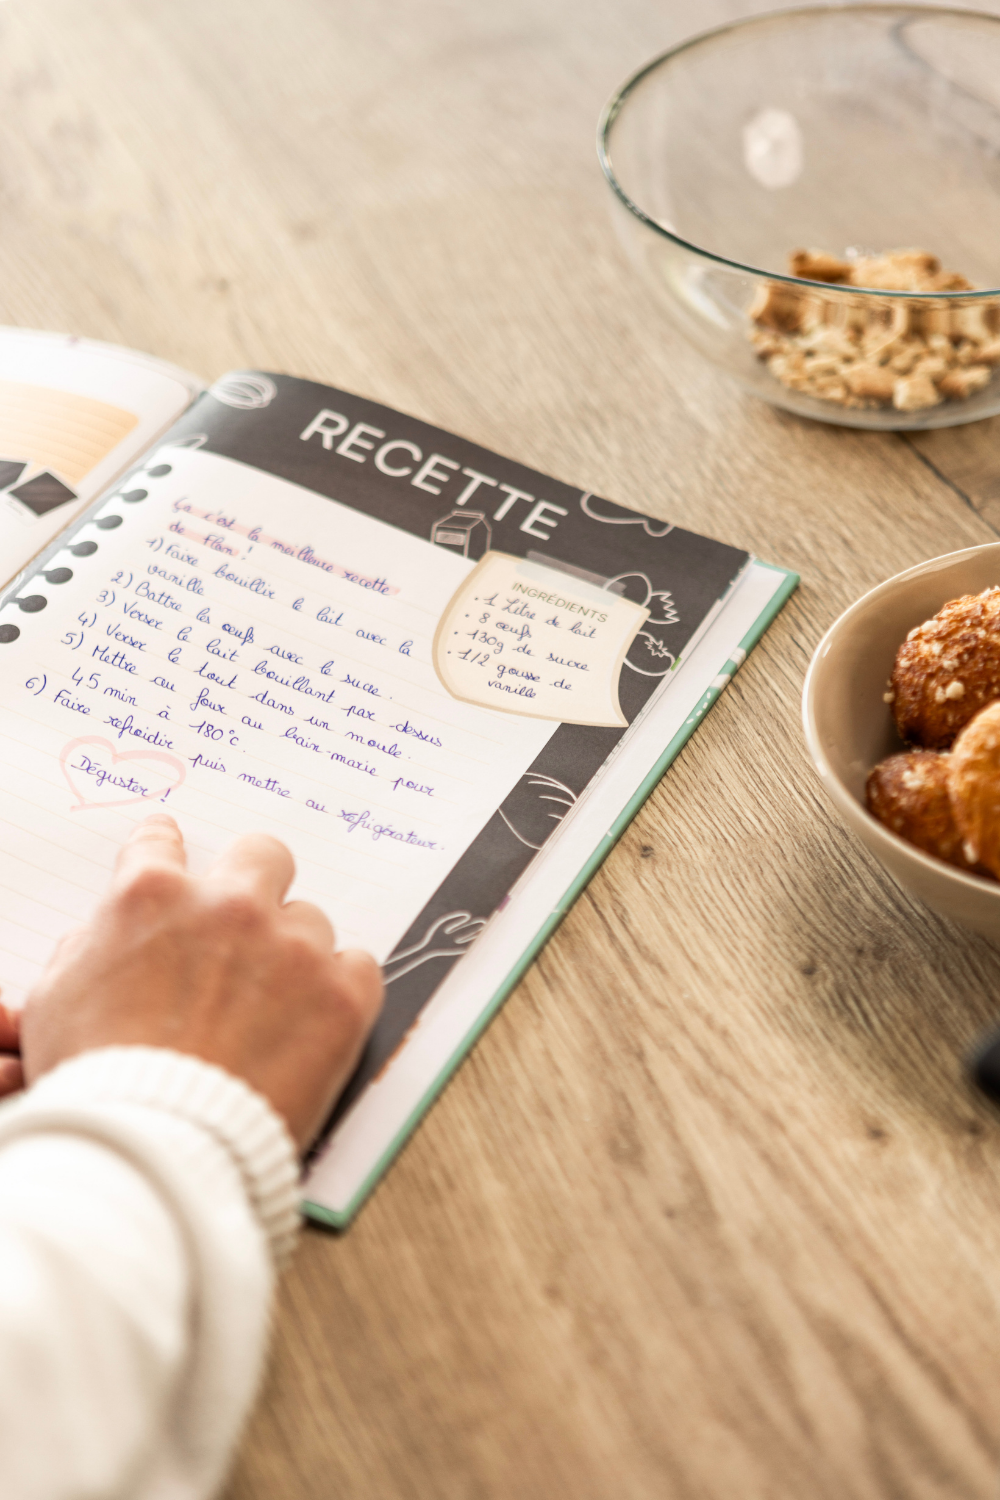 RECETTE
Ça c'est la meilleure recette
de flan !
1) Faire bouillir le lait avec la
vanille
2) Battre les œufs avec le sucre.
3) Verser le lait bouillant par dessus
4) Verser le tout dans un moule.
5) Mettre au four au bain-marie pour
45 min à 180°c.
6) Faire refroidir puis mettre au réfrigérateur.
Déguster !
INGRÉDIENTS
• 1 Litre de lait
• 8 œufs
• 130g de sucre
• 1/2 gousse de
vanille